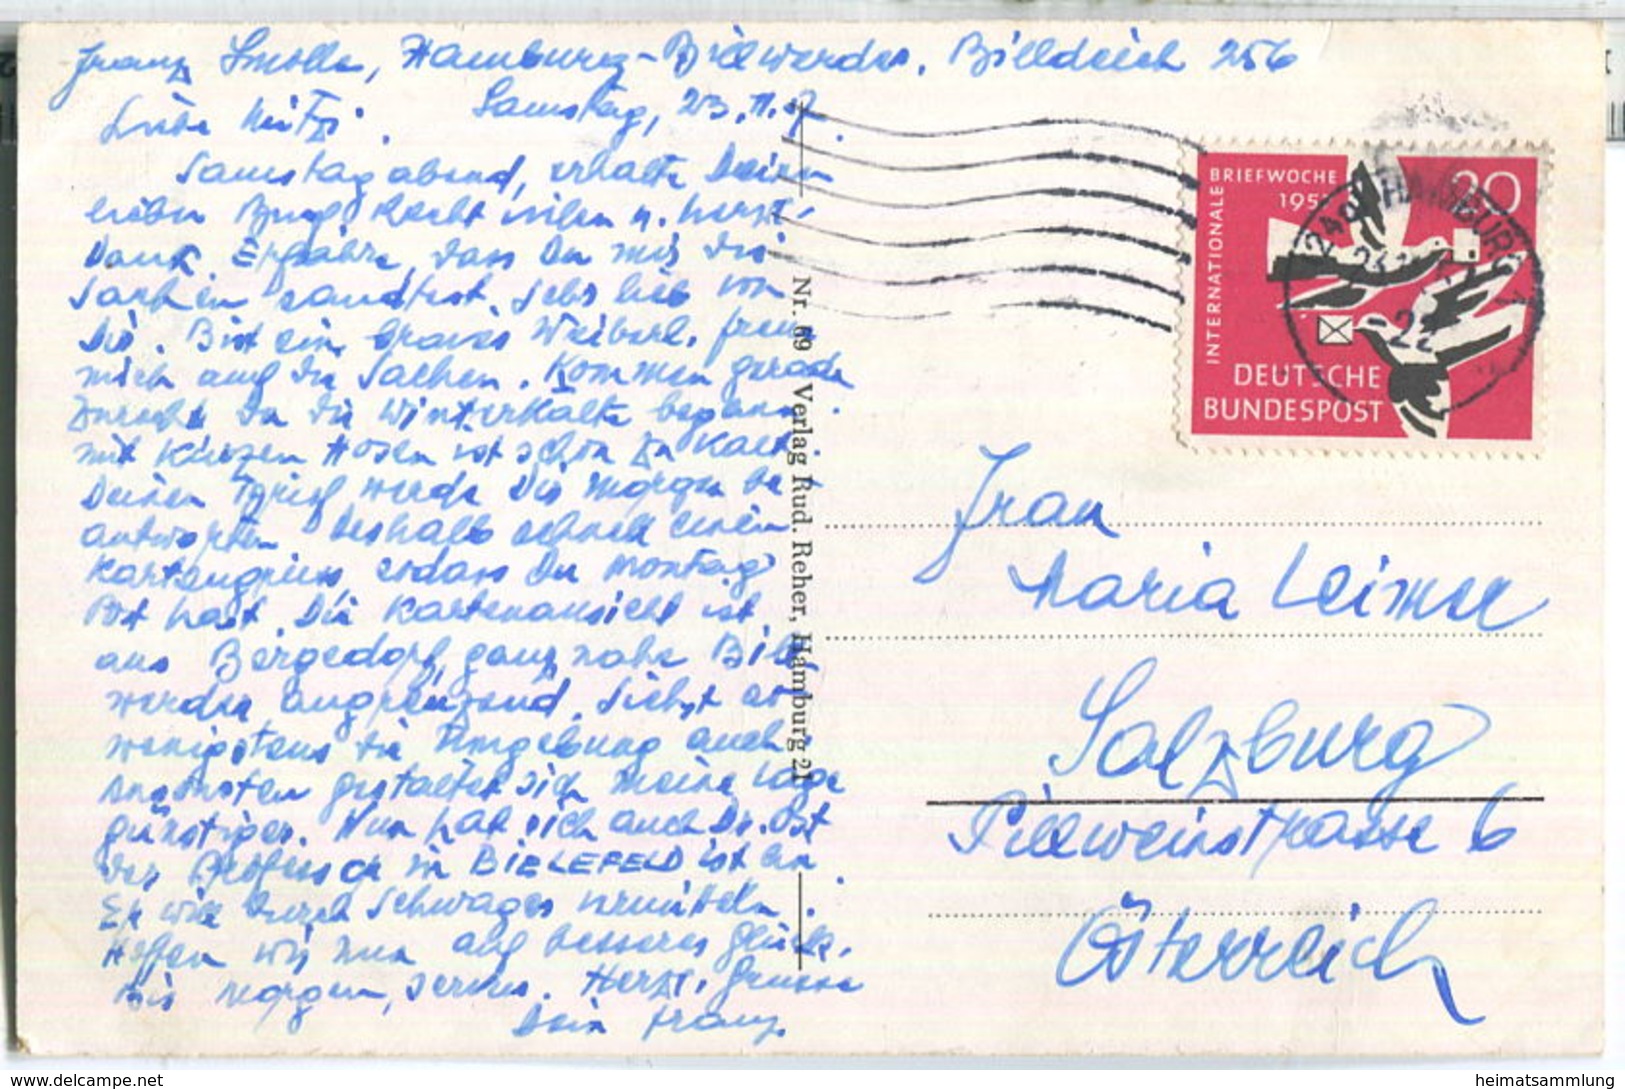 Franz Smolla, Hamburg-Billwerder, Billdeich 256
Samstag, 23.11.57.
Liebe Mitzi.
Samstag abend, erhalte Deinen
lieben Brief. Recht vielen u. herzl.
Dank. Erfahre, dass Du mir die
Sachen sandtest. Sehr lieb von
Dir. Bist ein braves Weiberl, freue
mich auf die Sachen. Kommen gerade
zurecht da die Winterkälte begann.
mit kurzen Hosen ist schon zu kalt.
Deinen Brief werde Dir morgen be-
antworten deshalb schnell einen
Kartengruss, sodass Du Montag
Post hast. Die Kartenansicht ist
aus Bergedorf, ganz nahe Bill-
werder angrenzend. Siehst so
wenigstens die Umgebung auch
Ansonsten gestaltet sich meine Lage
günstiger. Nun hat sich auch Dr. Ost
der Professor in BIELEFELD ist
Er will durch Schwager vermitteln.
Hoffen wir nun auf besseres Glück.
Bis morgen, servus. Herzl. Grüsse
Dein Franz.
Nr. 69 Verlag Rud. Reher, Hamburg 21
INTERNATIONALE
BRIEFWOCHE
1957
20
DEUTSCHE
BUNDESPOST
HAMBURG 1
22
Frau
Maria Leimer
Salzburg
Pillweinstrasse 6
Österreich
www.delcampe.net
heimatsammlung